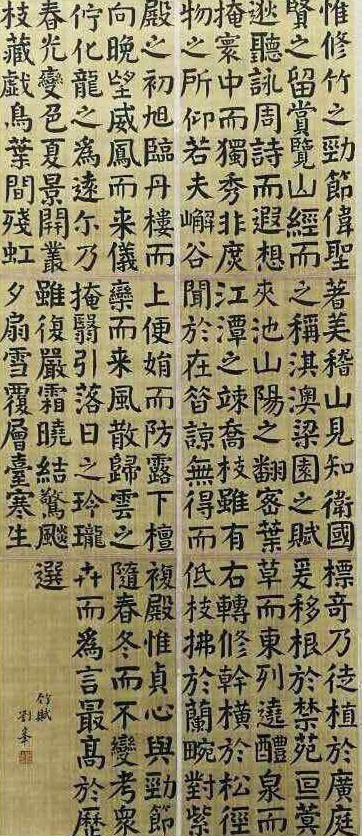 惟修竹之勁節偉聖
賢之留賞覽山經而
逖聽詠周詩而遐想
掩寰中而獨秀非庶
物之所仰若夫嶰谷
著美稽山見知衛國
之稱淇澳梁園之賦
夾池山陽之翻宻葉
江潭之竦喬枝雖有
聞於在昔諒無得而
標奇乃徙植於廣庭
爰移根於禁苑亘蓂
草而東列遶醴泉而
右轉修幹橫於松徑
低枝拂於蘭畹對紫
殿之初旭臨丹樓而
向晚望威鳳而来儀
佇化龍之為遠尓乃
春光變色夏景開叢
枝藏戲鳥葉間殘虹
上便娟而防露下檀
欒而来風散歸雲之
掩翳引落日之玲瓏
雖復嚴霜曉結驚飈
夕扇雪覆層臺寒生
複殿惟貞心與勁節
隨春冬而不變考衆
卉而為言最高於歷
選
竹賦